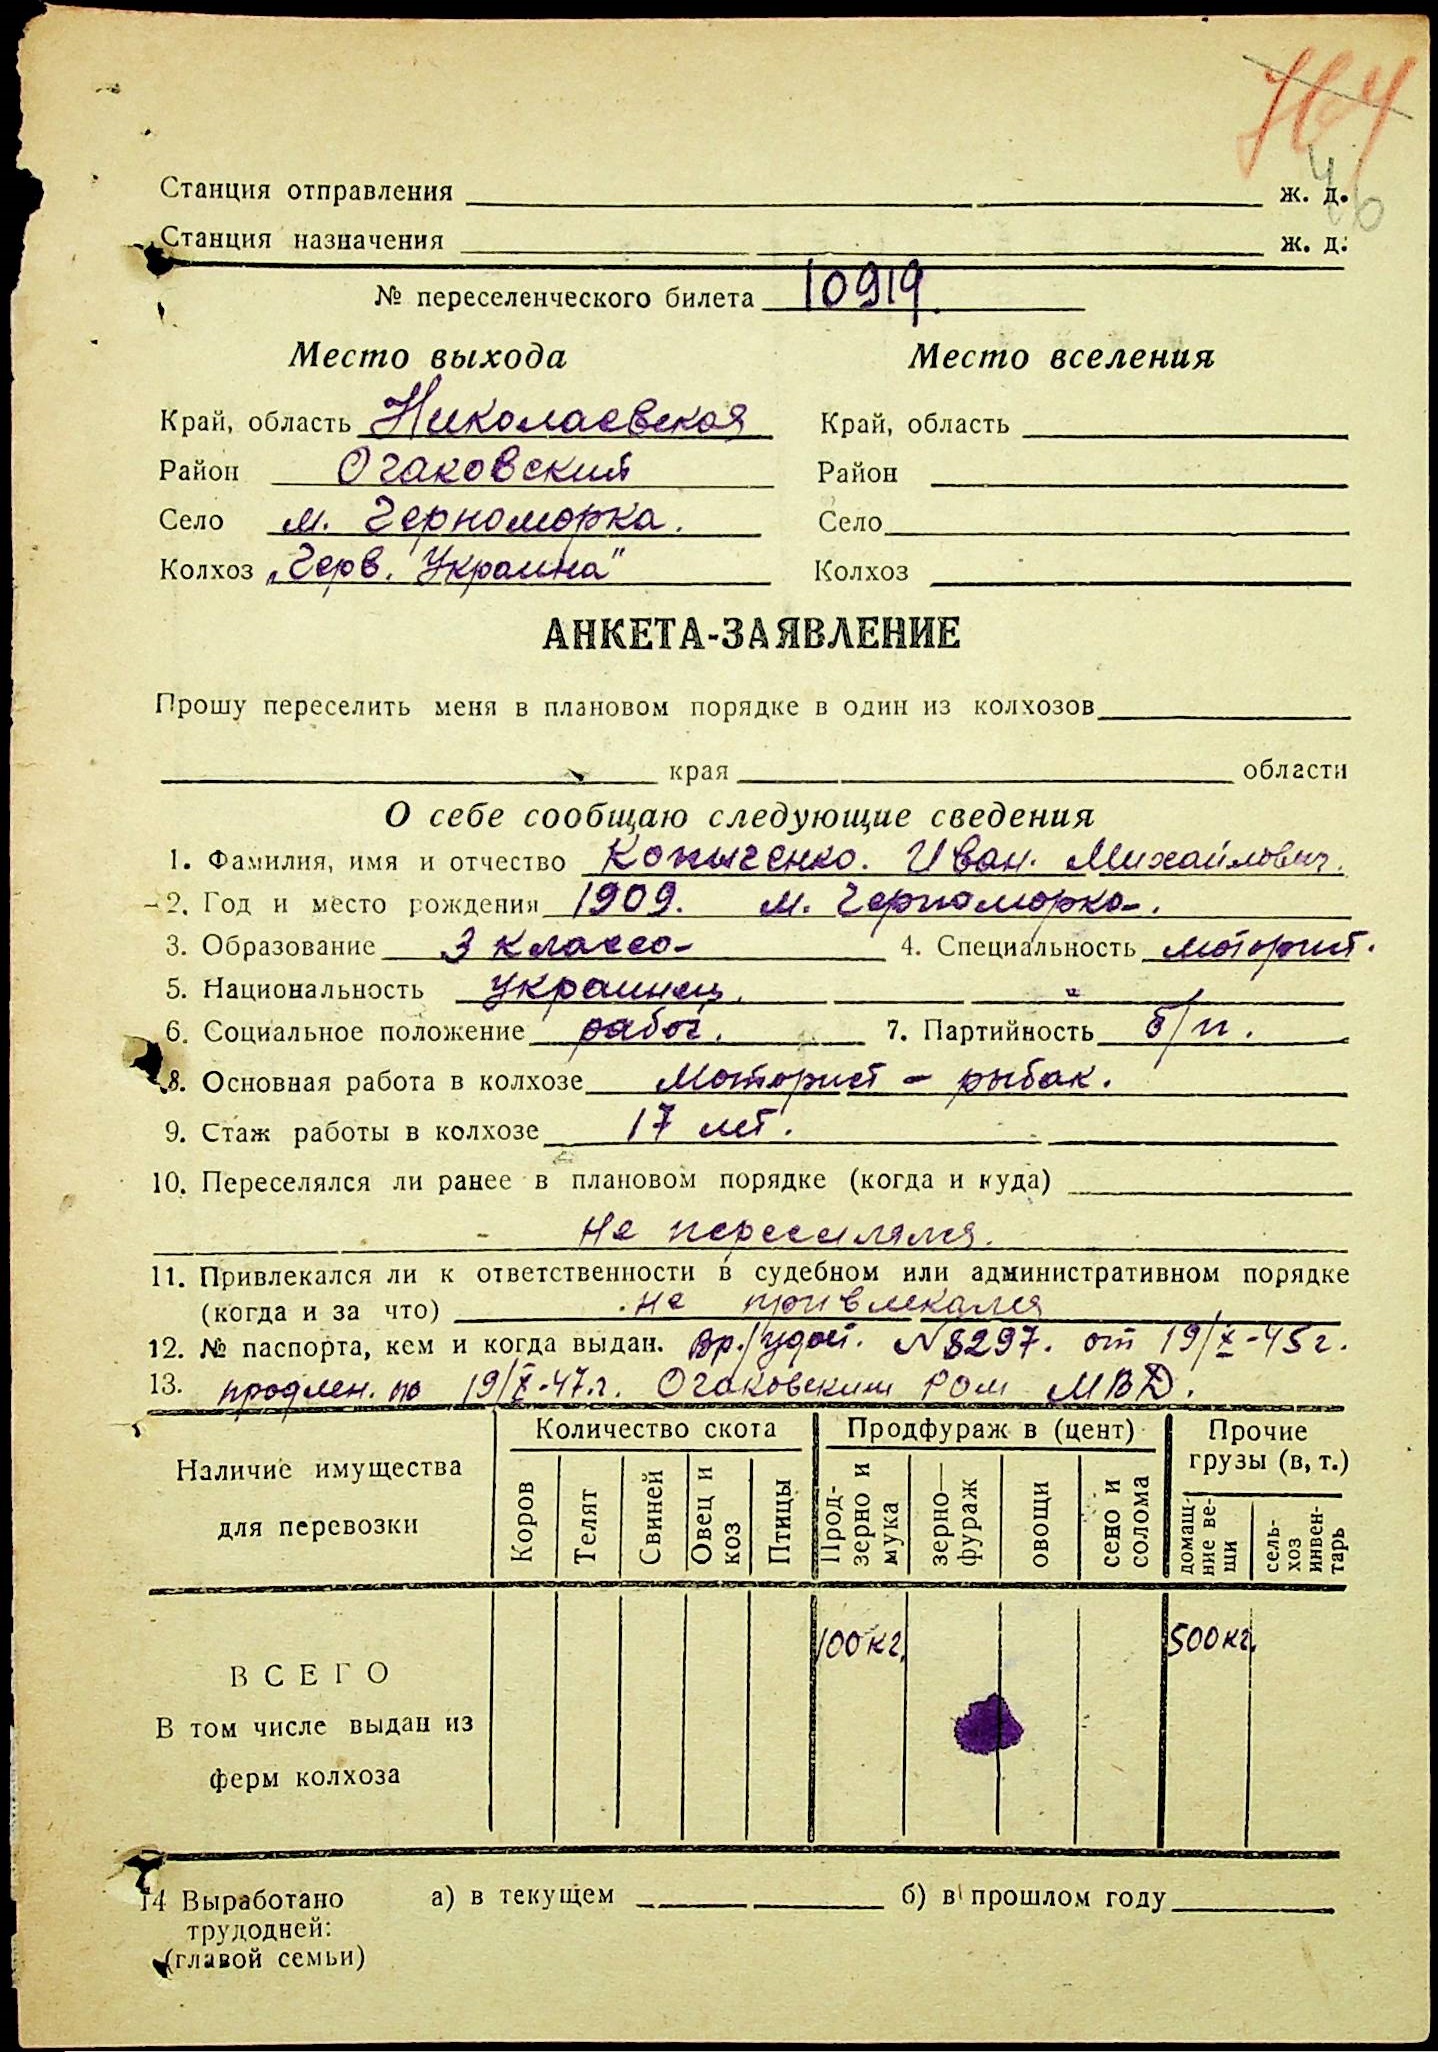 764
46
Станция отправления ж. д.
Станция назначения ж. д.
№ переселенческого билета 10919.
Место выхода Место вселения
Край, область Николаевская Край, область
Район Очаковский Район
Село м. Черноморка. Село
Колхоз „Черв. Украина" Колхоз
АНКЕТА-ЗАЯВЛЕНИЕ
Прошу переселить меня в плановом порядке в один из колхозов
края области
О себе сообщаю следующие сведения
1. Фамилия, имя и отчество Иван. Михайлович.
2. Год и место рождения 1909. м. Черноморка.
3. Образование 3 класса 4. Специальность моторист.
5. Национальность украинец.
6. Социальное положение рабоч. 7. Партийность б/п.
8. Основная работа в колхозе Моторист - рыбак.
9. Стаж работы в колхозе 17 лет.
10. Переселялся ли ранее в плановом порядке (когда и куда)
Не переселялся.
11. Привлекался ли к ответственности в судебном или административном порядке
(когда и за что) не привлекался
12. № паспорта, кем и когда выдан. Вр./удост. № 8297. от 19/X-45г.
13. продлен. по 19/X-47.г. Очаковским РОм МВД.
Наличие имущества для перевозки Количество скота Продфураж в (цент) Прочие грузы (в, т.)
Коров Телят Свиней Овец и коз Птицы Прод-зерно и мука зерно—фураж овощи сено и солома домаш-ние ве-ши сель-хоз инвен-тарь
100 кг. 500 кг.
ВСЕГО
В том числе выдан из
ферм колхоза
14 Выработано а) в текущем б) в прошлом году
трудодней:
(главой семьи)